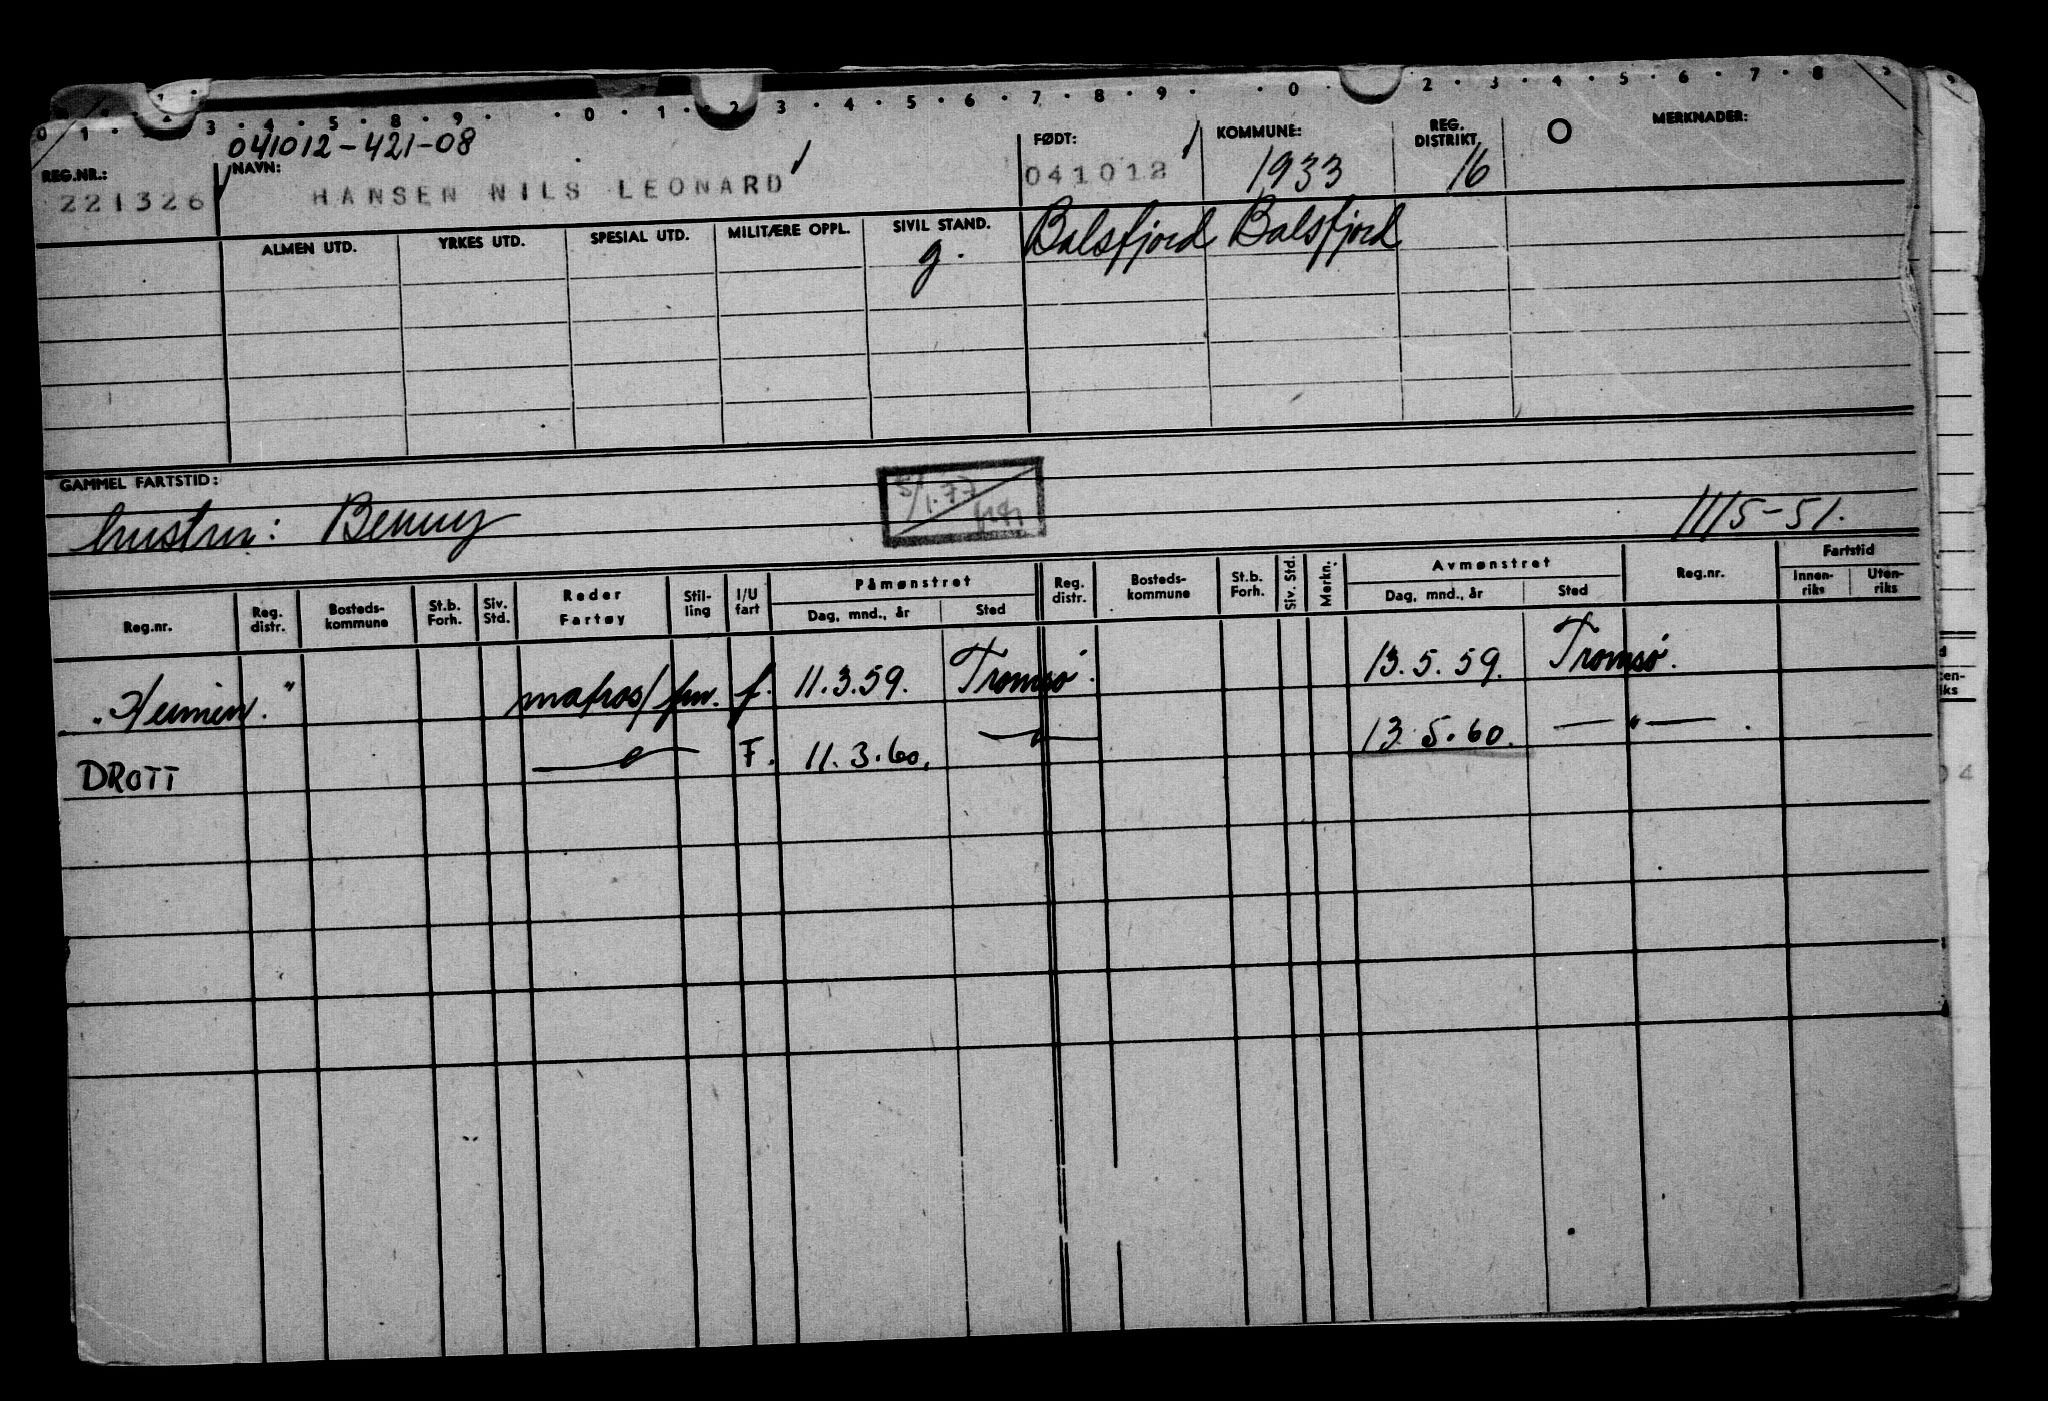 0 1 . 3 . 4 . 5 . 8 . 9 . . 0 . 1 . 2 3 . 4 . 5 . 6 . 7 . 8 . 9 . . 0 . 2 . 3 . 4 . 5 . 6 . 7 . 8
041012-421-08
REG.NR.: NAVN: FØDT: KOMMUNE: REG. DISTRIKT. O MERKNADER:
221326 HANSEN NILS LEONARD 041012 1933 16
ALMEN UTD. YRKES UTD. SPESIAL UTD. MILITÆRE OPPL. SIVIL STAND. Balsfjord Balsfjord
g.
GAMMEL FARTSTID:
hustru: Benny 5/1.77 11/5-51.
Reg.nr. Reg. distr. Bosteds-kommune St.b. Forh. Siv. Std. Reder Fartøy Stil-ling I/U fart Påmønstret Dag, mnd., år Sted Reg. distr. Bosteds-kommune St.b. Forh. Siv. Std. Merkn. Avmønstret Dag, mnd., år Sted Reg.nr. Fartstid Innen-riks Uten-riks
"Heimen." matros/fm. f. 11.3.59. Tromsø. 13.5.59. Tromsø.
DROTT —"— F. 11.3.60. —"— 13.5.60. —"— .